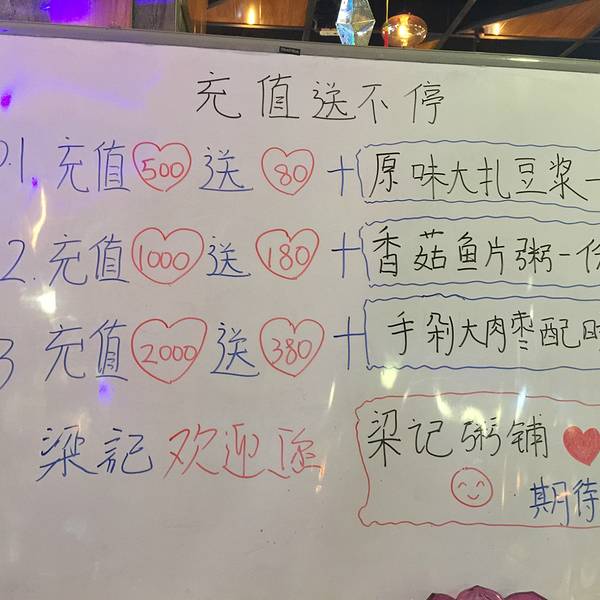 充值送不停
1. 充值500送80+原味大扎豆浆一
2. 充值1000送180+香菇鱼片粥一份
3 充值2000送380+手剁大肉枣配
梁記欢迎您
梁记粥铺
期待